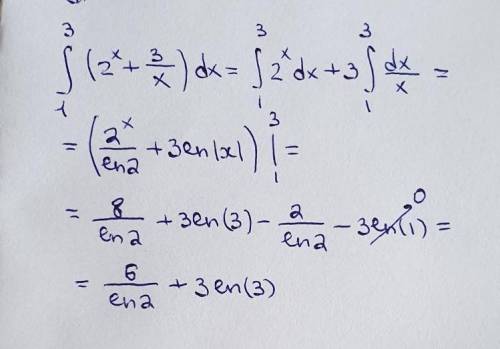 ∫₁³ (2ˣ + 3/x) dx = ∫₁³ 2ˣ dx + 3 ∫₁³ dx/x =
= (2ˣ/ln2 + 3ln|x|) |₁³ =
= 8/ln2 + 3ln(3) - 2/ln2 - 3ln(1)⁰ =
= 6/ln2 + 3ln(3)